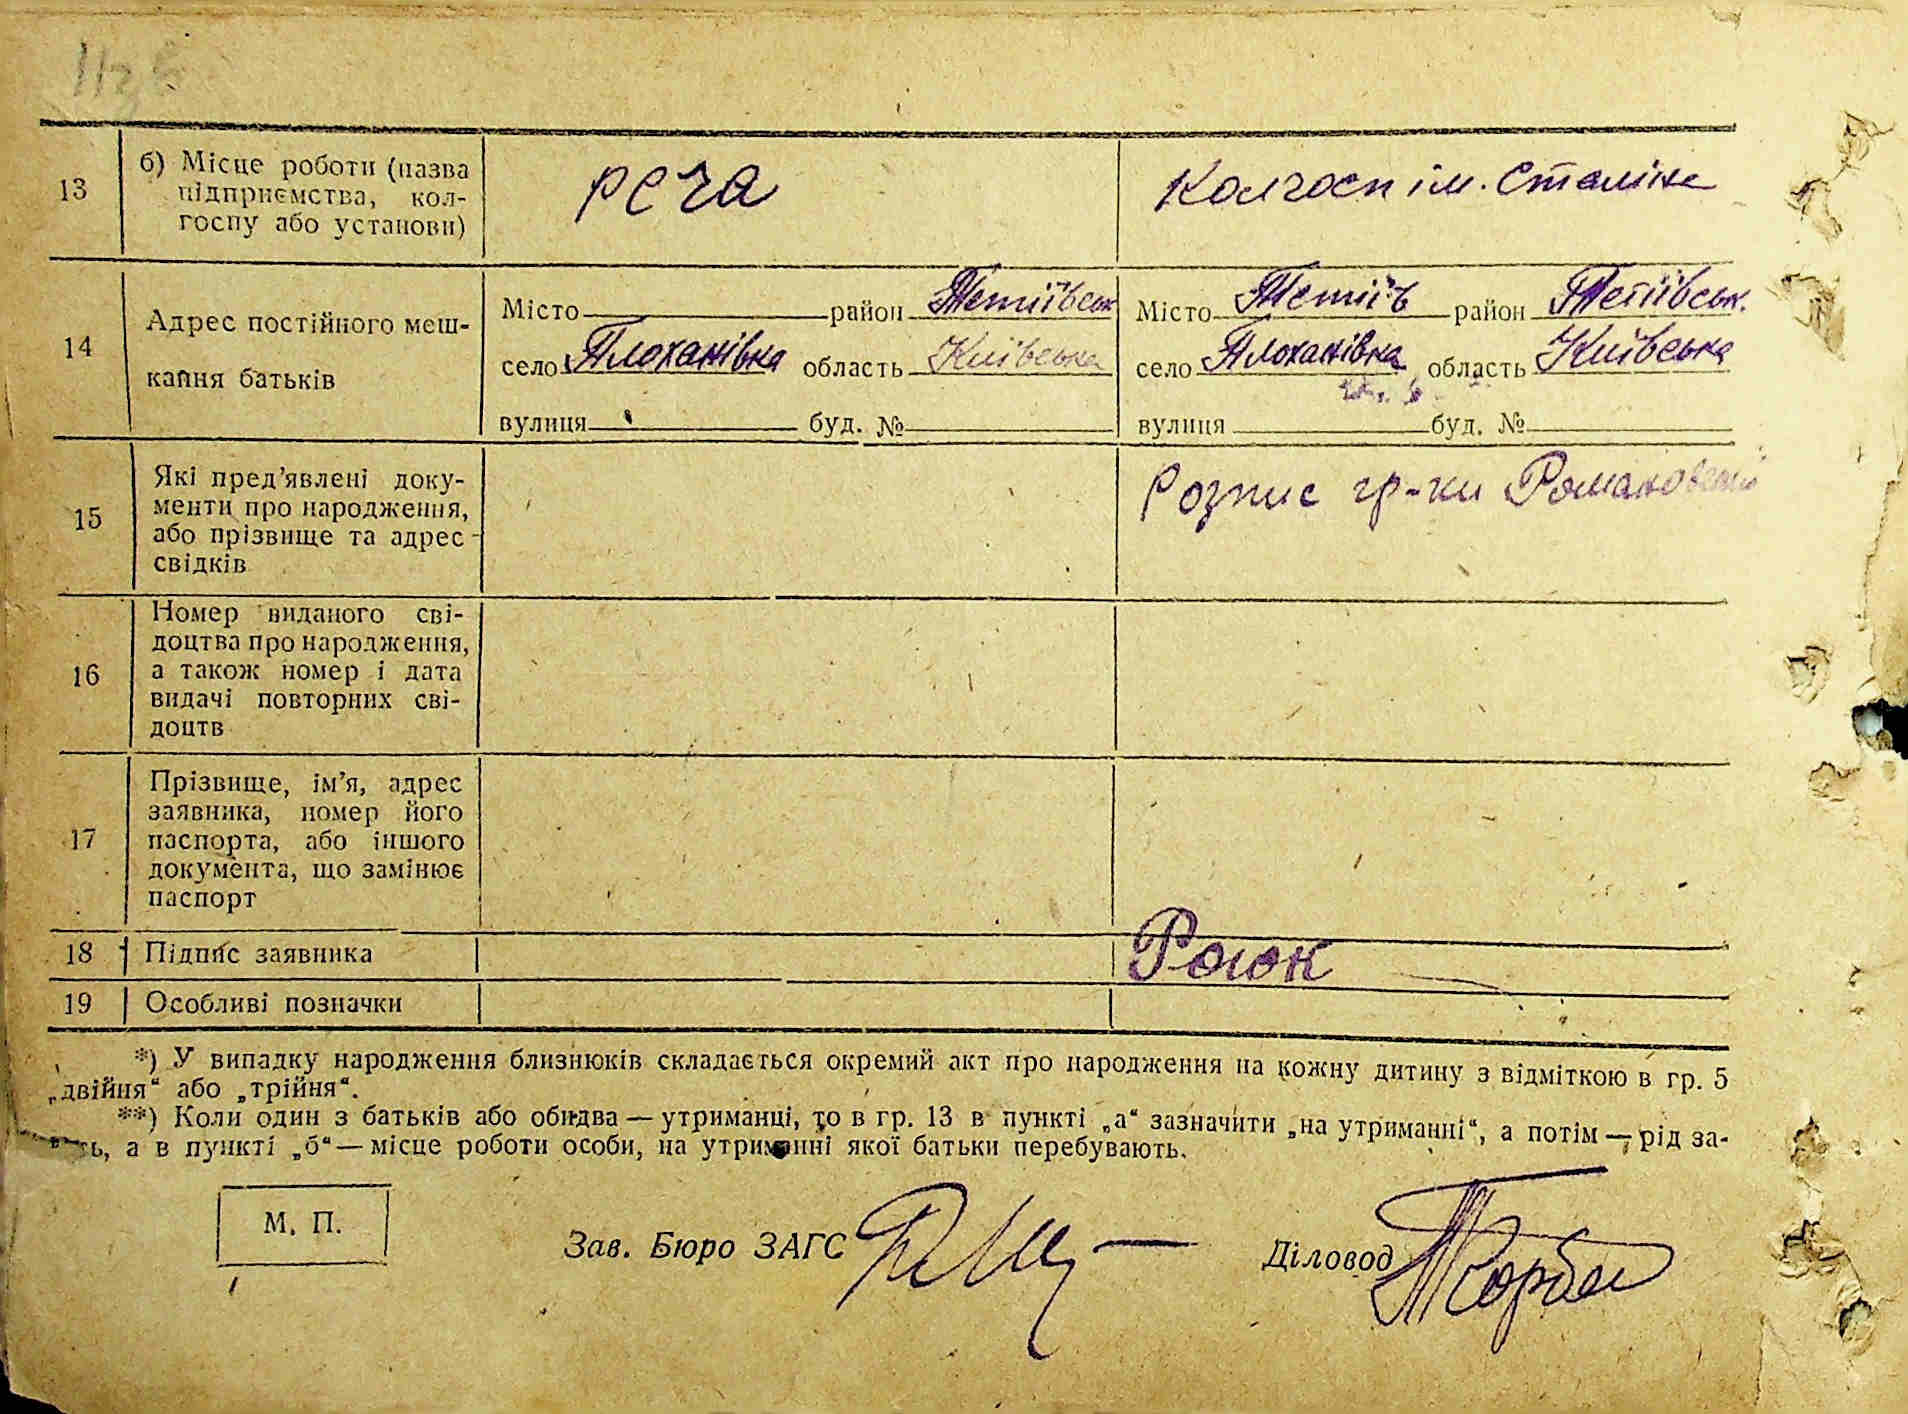 13
б) Місце роботи (назва
підприємства, кол-
госпу або установи)
Колгосп ім. Сталіна
14
Адрес постійного меш-
кання батьків
Місто район Тетіївськ
село Плоханівка область Київська
вулиця буд. №
Місто Тетіїв район Тетіївськ.
село Плоханівка область Київська
вулиця буд. №
15
Які пред’явлені доку-
менти про народження,
або прізвище та адрес
свідків
Розпис гр-ки
16
Номер виданого сві-
доцтва про народження,
а також номер і дата
видачі повторних сві-
доцтв
17
Прізвище, ім’я, адрес
заявника, номер його
паспорта, або іншого
документа, що замінює
паспорт
18 Підпис заявника
19 Особливі позначки
*) У випадку народження близнюків складається окремий акт про народження на кожну дитину з відміткою в гр. 5
„двійня“ або „трійня“.
**) Коли один з батьків або обидва — утриманці, то в гр. 13 в пункті „а“ зазначити „на утриманні“, а потім — рід за-
а в пункті „б“ — місце роботи особи, на утриманні якої батьки перебувають.
М. П.
Зав. Бюро ЗАГС
Діловод